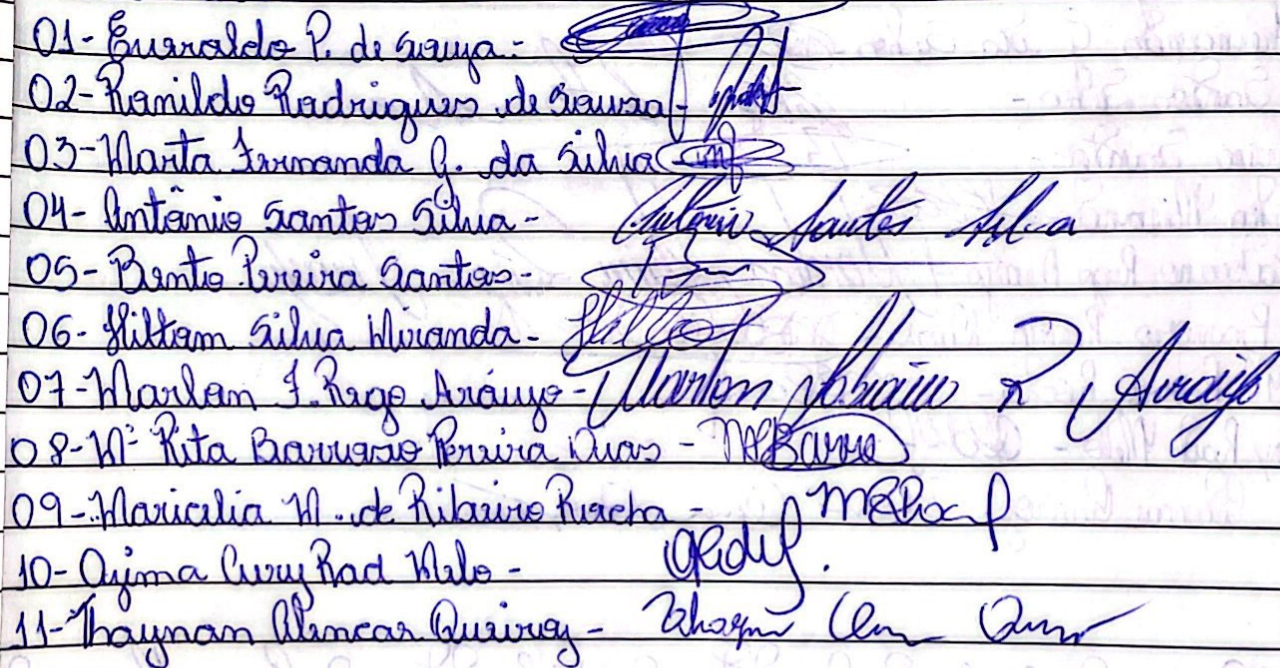 01- Eusvaldo P. de Souza -
02- Ronildo Rodrigues de Souza -
03- Marta Fernanda G. da Silva
04- Antônio Santos Silva - Antonio Santos Silva
05- Bento Pereira Santos -
06- Hiltom Silva Miranda -
07- Marlon F. Rego Araújo - Marlon R Araujo
08- Mª Rita Barroso Pereira Dias - MRBarro
09- Maricelia M. de Ribeiro Rocha - MRRoca
10- Ozima Cury Rad Melo -
11- Thaynan Alencar Queiroz -